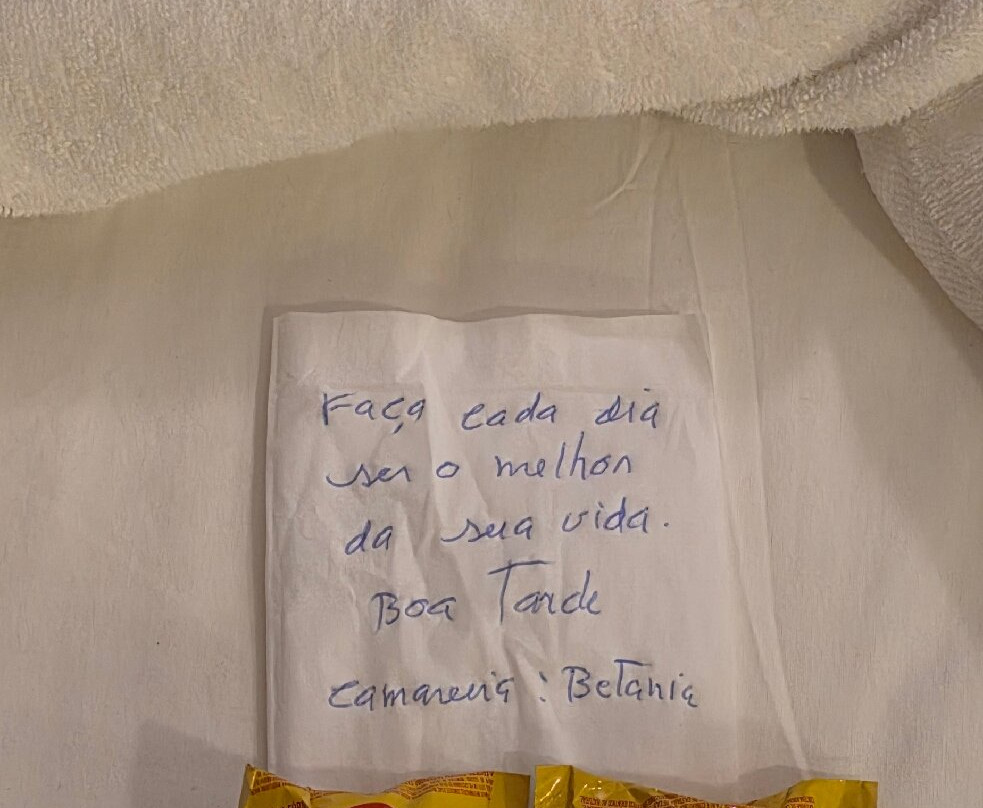 Faça cada dia
ser o melhor
da sua vida.
Boa Tarde
camareira : Betania